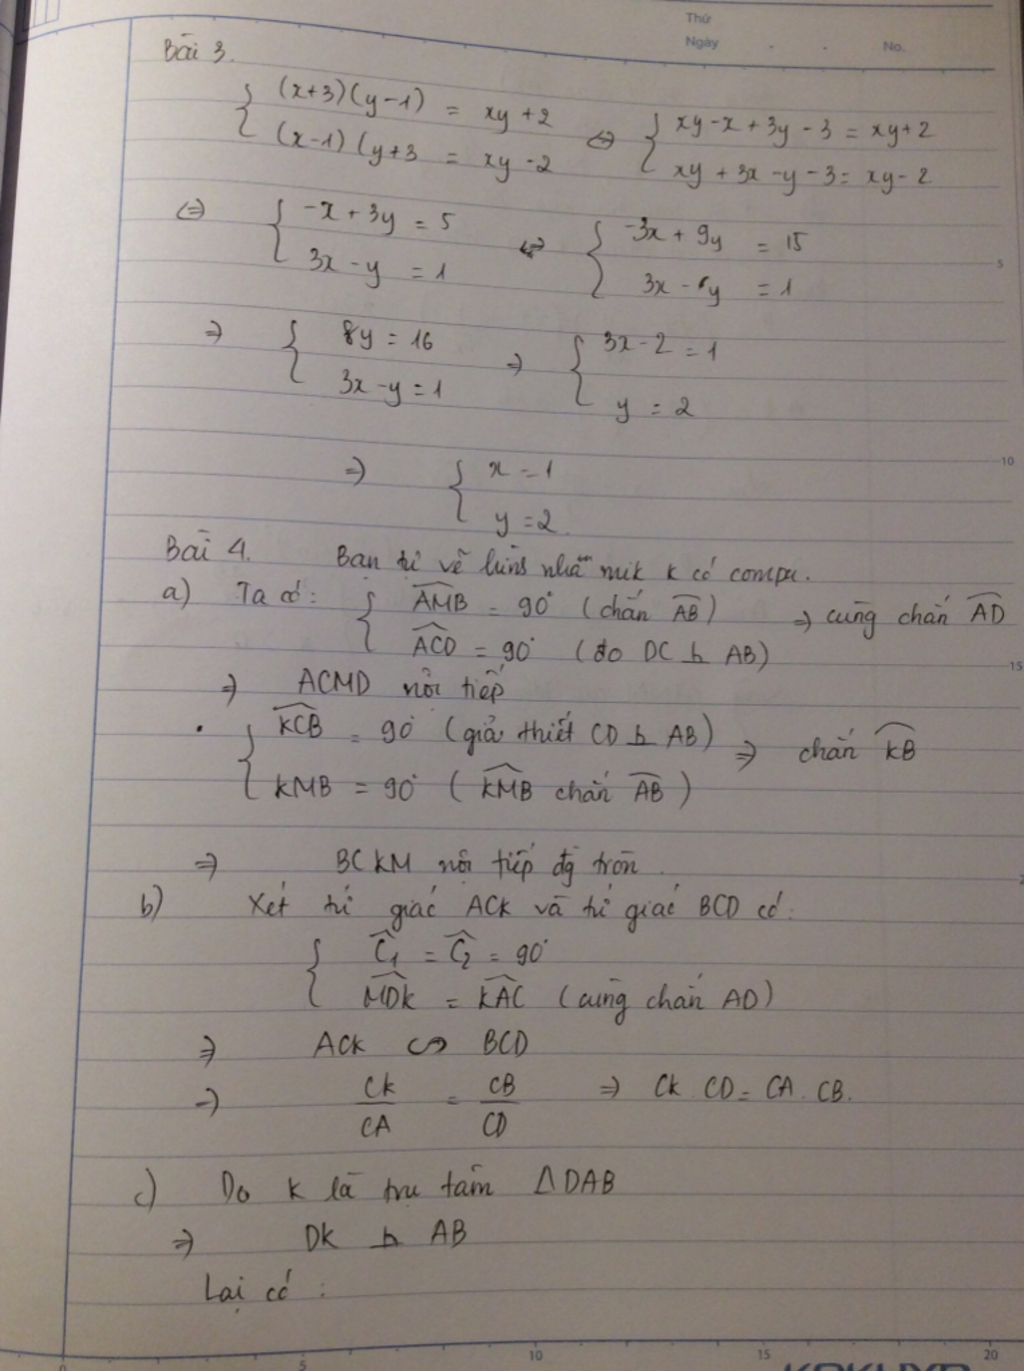 Thứ
Ngày . . No.
Bài 3.
{ (x+3)(y-1) = xy+2 <=> { xy-x+3y-3 = xy+2
(x-1)(y+3 = xy-2 xy+3x-y-3 = xy-2
<=> { -x+3y = 5 <=> { -3x+9y = 15
3x-y = 1 3x-y = 1
=> { 8y = 16 => { 3x-2 = 1
3x-y = 1 y = 2
=> { x = 1
y = 2.
Bài 4. Bạn tự vẽ hình nhá mik k có compa.
a) Ta có: { AMB = 90° (chắn AB) => cùng chắn AD
ACD = 90° (do DC ⊥ AB)
=> ACMD nội tiếp
. { KCB = 90° (giả thiết CD ⊥ AB) => chắn KB
KMB = 90° (KMB chắn AB)
=> BCKM nội tiếp đg tròn.
b) Xét tứ giác ACK và tứ giác BCD có:
{ C1 = C2 = 90°
MDK = KAC (cùng chắn AD)
=> ACK ∽ BCD
=> CK/CA = CB/CD => CK.CD = CA.CB.
c) Do K là trự tâm ΔDAB
=> DK ⊥ AB
Lại có :
5
10
15
5
10
15
20